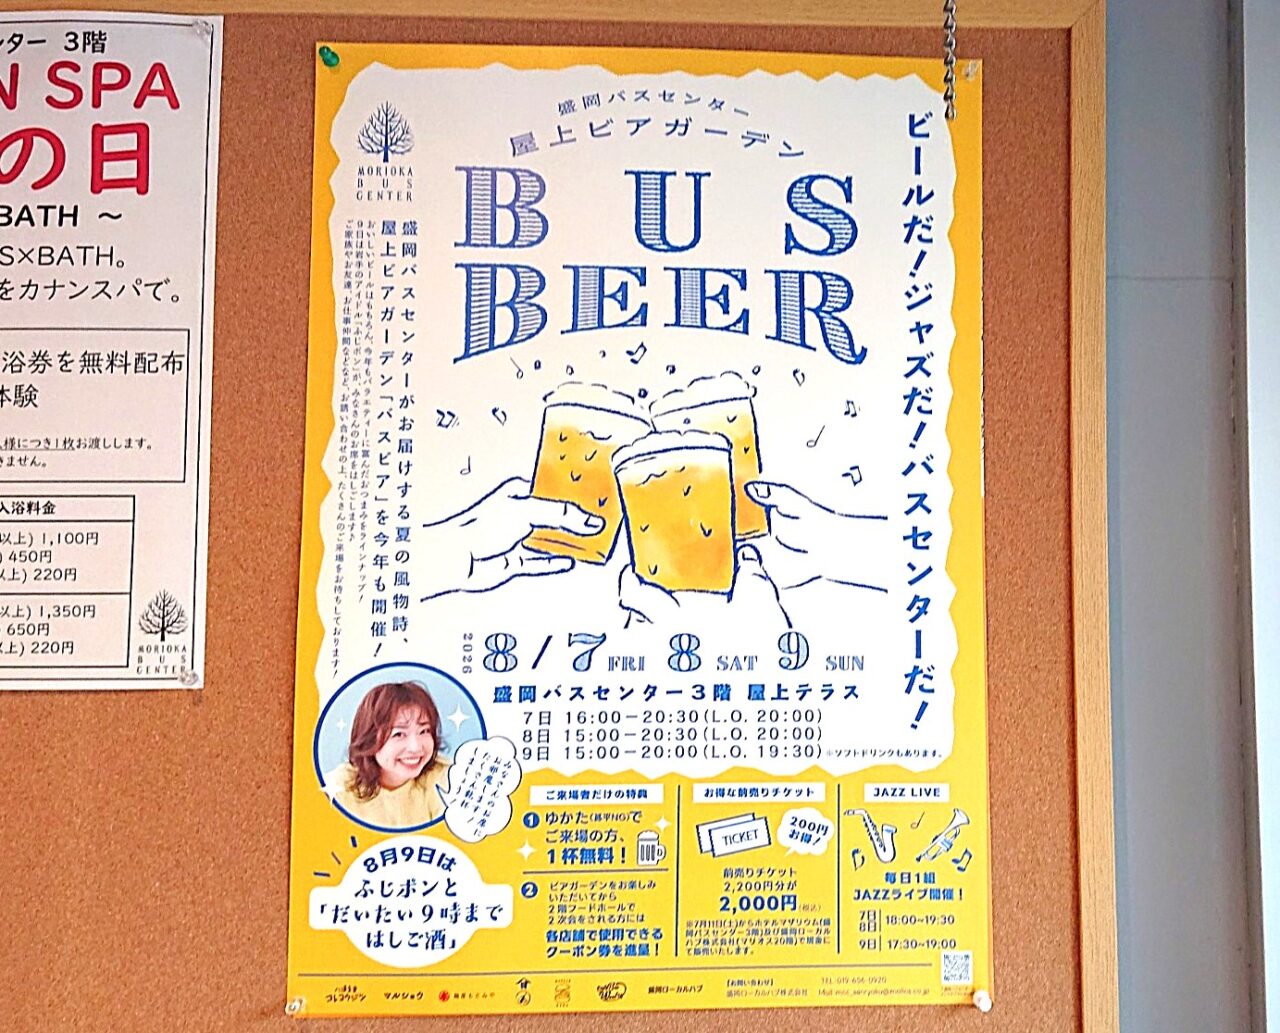 ンター 3階
N SPA
の日
BATH ～
S×BATH。
をカナンスパで。
浴券を無料配布
体験
様につき1枚お渡しします。
きません。
入浴料金
以上) 1,100円
450円
以上) 220円
以上) 1,350円
650円
以上) 220円
MORIOKA
BUS
CENTER
MORIOKA
BUS
CENTER
盛岡バスセンター
屋上ビアガーデン
BUS
BEER
ビールだ！ジャズだ！バスセンターだ！
盛岡バスセンターがお届けする夏の風物詩、
屋上ビアガーデン「バスビア」を今年も開催！
おいしいビールはもちろん、今年もバラエティーに富んだおつまみをラインナップ！
9日は岩手のアイドル「ふじポン」が、みなさんのお席をはしごします♪
ご家族やお友達、お仕事仲間などなど、お誘い合わせの上、たくさんのご来場をお待ちしております！
2026
8/7 FRI 8 SAT 9 SUN
盛岡バスセンター3階 屋上テラス
7日 16:00－20:30(L.O. 20:00)
8日 15:00－20:30(L.O. 20:00)
9日 15:00－20:00(L.O. 19:30)
※ソフトドリンクもあります。
みなさんのお席に
お邪魔します！
たくさん乾杯
しましょう！
8月9日は
ふじポンと
「だいたい9時まで
はしご酒」
ご来場者だけの特典
1 ゆかた(甚平NG)で
ご来場の方、
1杯無料！
2 ビアガーデンをお楽しみ
いただいてから
2階フードホールで
2次会をされる方には
各店舗で使用できる
クーポン券を進呈！
お得な前売りチケット
TICKET
200円
お得！
前売りチケット
2,200円分が
2,000円(税込)
※7月11日(土)からホテルマザリウム(盛
岡バスセンター3階)及び盛岡ローカル
ハブ株式会社(マリオス20階)で現金に
て販売いたします。
JAZZ LIVE
毎日1組
JAZZライブ開催！
7日
8日 18:00~19:30
9日 17:30~19:00
マルショウ
盛岡ローカルハブ
【お問い合わせ】
盛岡ローカルハブ株式会社
TEL:019-656-0920